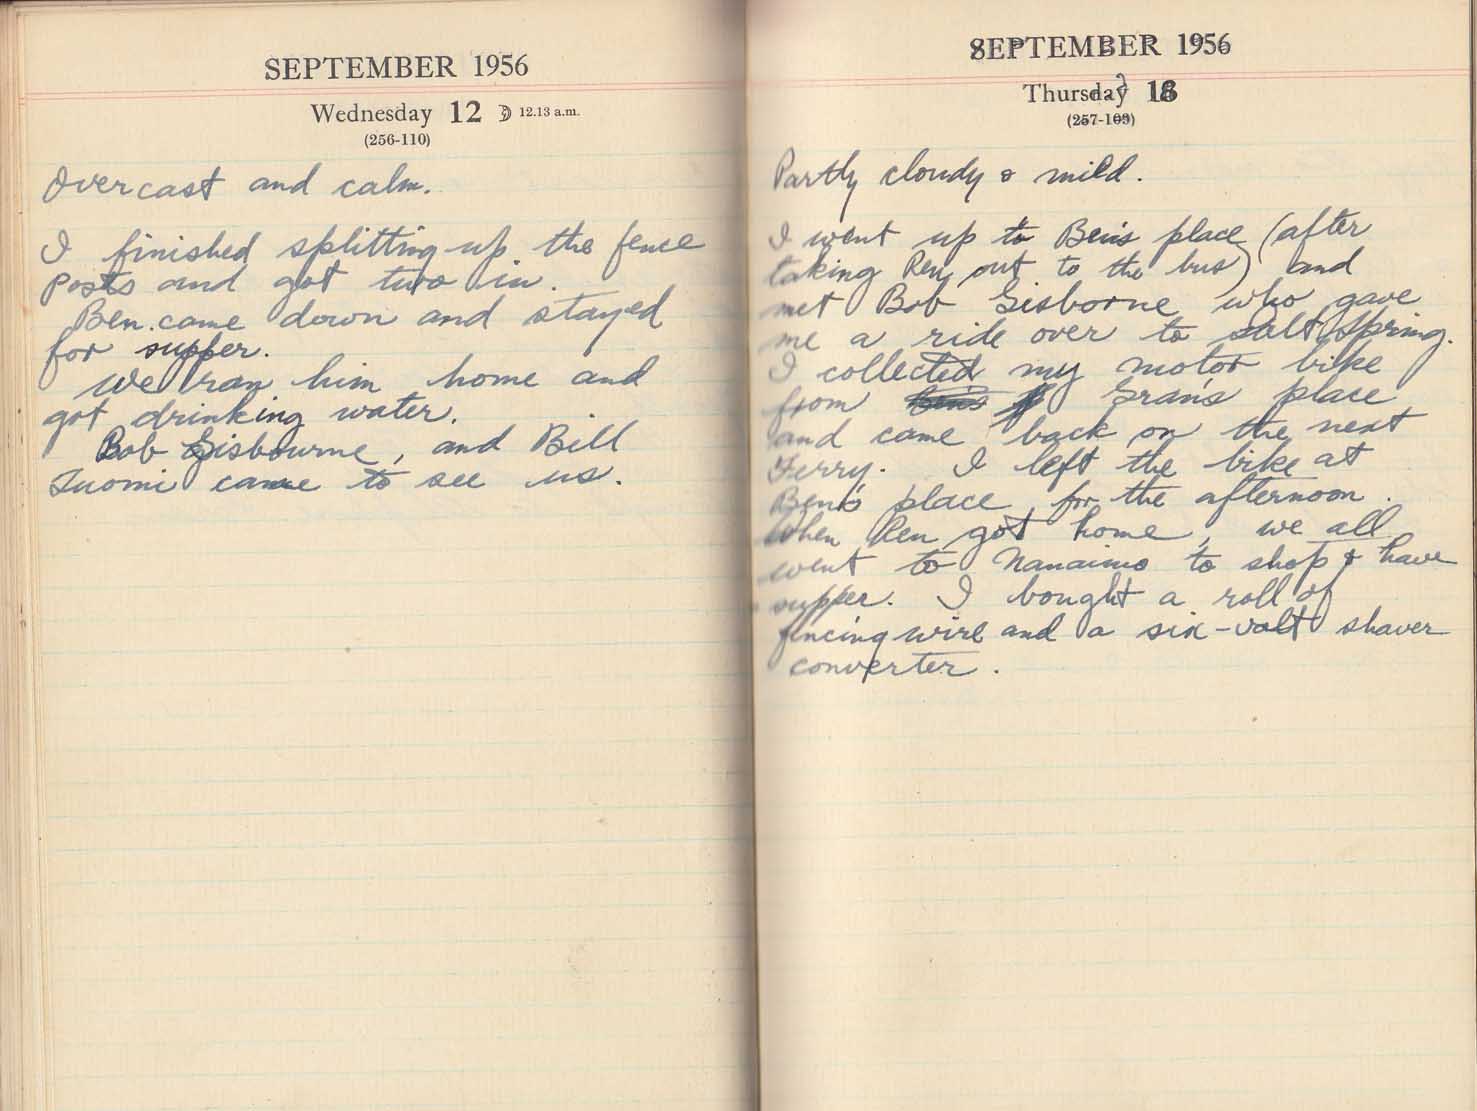 SEPTEMBER 1956
Wednesday 12 ☽ 12.13 a.m.
(256-110)
Overcast and calm.
I finished splitting up the fence
posts and got two in.
Ben came down and stayed
for supper.
We ran him home and
got drinking water.
Bob Gisbourne, and Bill
Tuomi came to see us.
SEPTEMBER 1956
Thursday 13
(257-109)
Partly cloudy & mild.
I went up to Ben's place (after
taking Ren out to the bus) and
met Bob Gisborne who gave
me a ride over to Salt Spring.
I collected my motor bike
from Gran's place
and came back on the next
Ferry. I left the bike at
Ben's place for the afternoon.
When Ren got home, we all
went to Nanaimo to shop & have
supper. I bought a roll of
fencing wire and a six-volt shaver
converter.